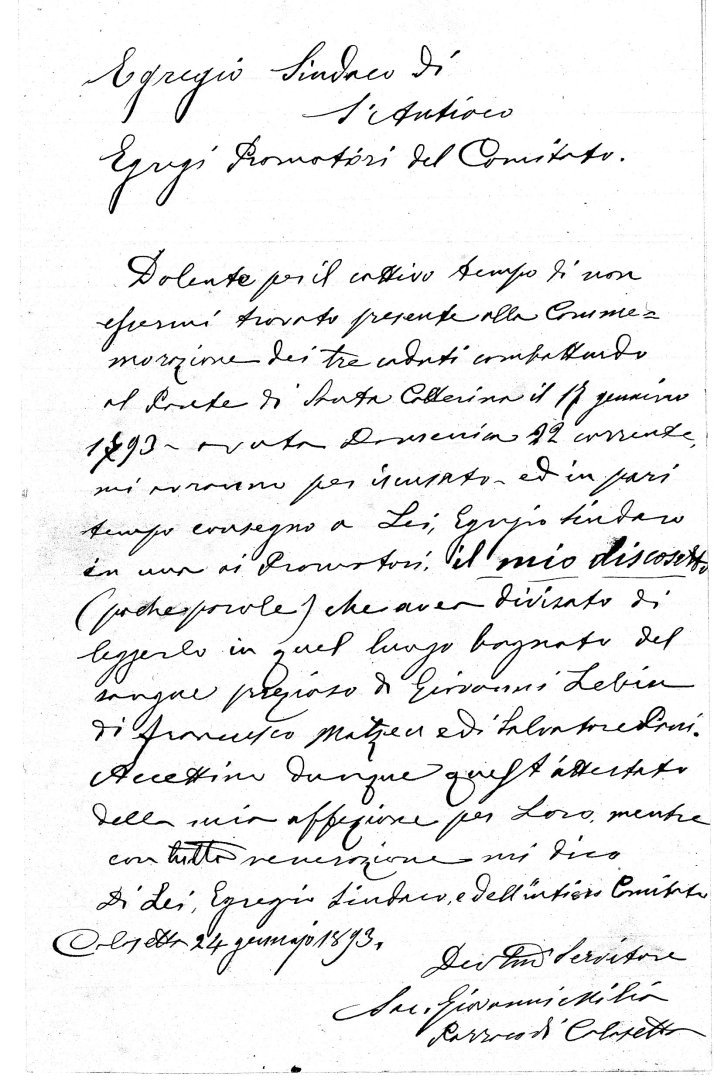 Egregio Sindaco di
S. Antioco
Egregi Promotori del Comitato.
Dolente per il cattivo tempo di non
essermi trovato presente alla Comme=
morazione dei tre caduti combattendo
al Ponte di Santa Catterina il 17 gennaio
1793 - avuta Domenica 22 corrente,
mi avranno per iscusato - ed in pari
tempo consegno a Lei, Egregio Sindaco
in una ai Promotori, il mio discorsetto
(poche parole) che avea divisato di
leggerlo in quel luogo bagnato del
sangue prezioso di Giovanni Lebiu
di Francesco Matzeu e di Salvatore Pani.
Accettino dunque quest'attestato
della mia affezione per Loro, mentre
con tutta venerazione mi dico
Di Lei, Egregio Sindaco, e dell'intiero Comitato
Calasetta 24 gennajo 1893.
Dev.tmo Servitore
Sac. Giovanni Milia
Parroco di Calasetta